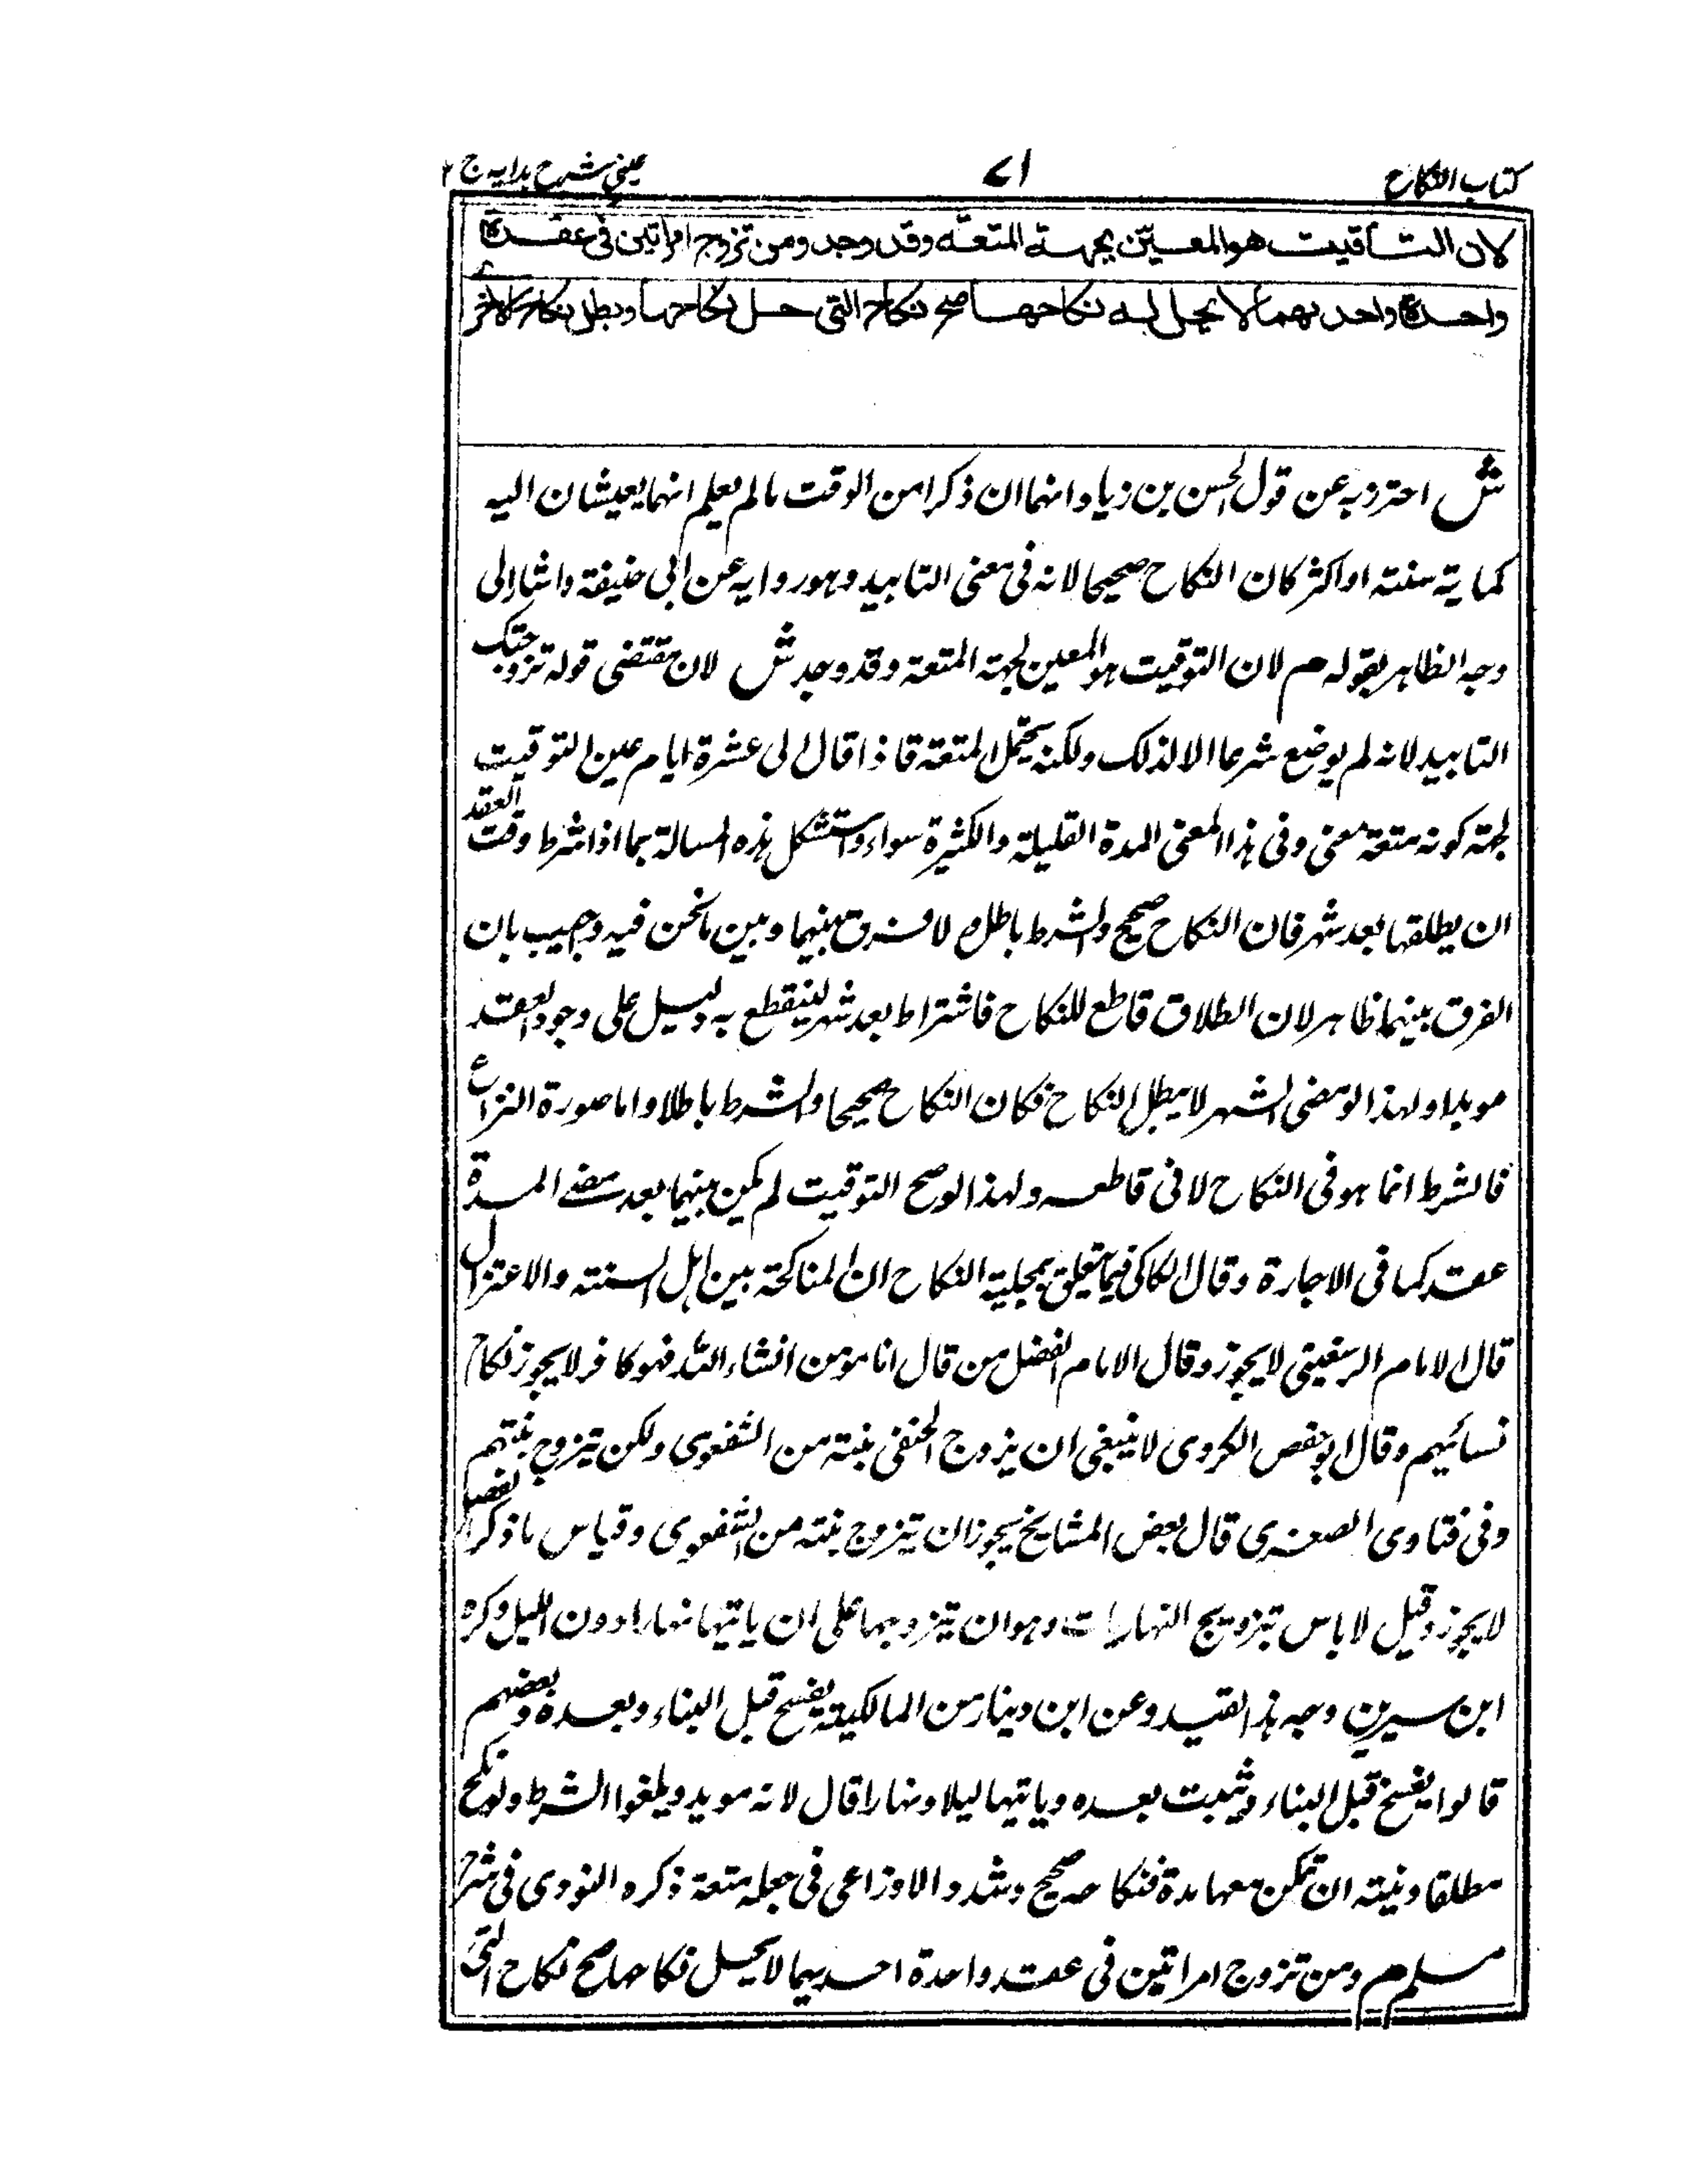 كتاب النكاح
٧١
عيني شرح هدايه ج ٢
لان التاقيت هو المعيّن بجهة المتعه وقد وجد ومن تزوج امراتين فى عقدة
واحدة واحدىهما لا يحل له نكاحها صح نكاح التى حل نكاحها وبطل نكاح الاخرى
ش احترز به عن قول الحسن بن زياد انهما ان ذكرا من الوقت ما لم يعلم انهما يعيشان اليه
كماية سنته او اكثر كان النكاح صحيحا لانه فى معنى التابيد وهو رواية عن ابى حنيفة واشار الى
وجه الظاهر بقوله م لان التوقيت هو المعين لجهة المتعة وقد وجد ش لان مقتضى قوله تزوجتك
التابيد لانه لم يوضع شرعا الا لذلك ولكنه يحتمل المتعة فاذا قال الى عشرة ايام عين التوقيت
لجهة كونه متعة معنى وفى هذا المعنى المدة القليلة والكثيرة سواء واستشكل هذه المسالة بما اذا شرط وقت العقد
ان يطلقها بعد شهر فان النكاح صحيح والشرط باطل ولا فرق بينهما وبين ما نحن فيه واجيب بان
الفرق بينهما ظاهر لان الطلاق قاطع للنكاح فاشتراط بعد شهر لينقطع به دليل على وجود العقد
موبدا ولهذا لو مضى الشهر لا يبطل النكاح فكان النكاح صحيحا والشرط باطلا واما صورة النزاع
فالشرط انما هو فى النكاح لا فى قاطعه ولهذا لو صح التوقيت لم يكن بينهما بعد مضى المدة
عقد كما فى الاجارة وقال الكاكى فيما يتعلق بمحلية النكاح ان المناكحة بين اهل السنته والاعتزال
قال الامام الرستغنى لا يجوز وقال الامام الفضل من قال انا مومن انشاء الله فهو كافر لا يجوز نكاح
نسائهم وقال ابو حفص الكروى لا ينبغى ان يزوج الحنفى بنته من الشفعوى ولكن يتزوج بنتهم
وفى فتاوى الصغرى قال بعض المشايخ يجوز ان يتزوج بنته من الشفعوى وقياس ما ذكر
لا يجوز وقيل لا باس بتزويج النهاريات وهو ان يتزوجها على ان ياتيها نهارا دون الليل وكره
ابن سيرين وجه هذا القيد وعن ابن دينار من المالكية يفسخ قبل البناء وبعده وبعضهم
قالوا يفسخ قبل البناء ويثبت بعده وياتيها ليلا ونهارا قال لانه موبد ويلغوا الشرط ولو نكح
مطلقا ونيته ان يمكن معها مدة فنكاحه صحيح وشذ والاوزاعى فى جعله متعة ذكره النووى فى شرح
مسلم م ومن تزوج امراتين فى عقد واحدة احديهما لا يحل نكاحها صح نكاح التى